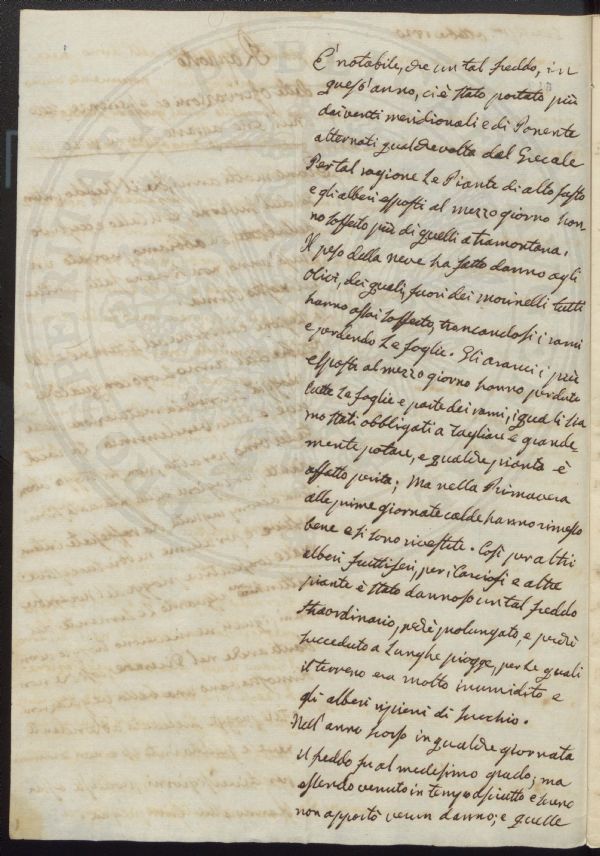 È notabile, che un tal freddo, in
quest'anno, ci è stato portato più
dai venti meridionali e di Ponente
alternati qualche volta dal Grecale
Per tal ragione Le Piante di alto fusto
e gli alberi esposti al mezzo giorno han
no sofferto più di quelli a tramontana.
Il peso della neve ha fatto danno agli
olivi, dei quali, fuori dei morinelli tutti
hanno assai sofferto, troncandosi i rami
e perdendo Le foglie. Gli aranci i più
esposti al mezzo giorno hanno perduto
tutte Le foglie e parte dei rami, i quali sia
mo stati obbligati a tagliare e grande-
mente potare, e qualche pianta è
affatto perita; Ma nella Primavera
alle prime giornate calde hanno rimesso
bene e si sono rivestite. Così per altri
alberi fruttiferi, per i Carciofi e altre
piante è stato dannoso un tal freddo
straordinario, perchè prolungato, e perchè
succeduto a Lunghe piogge, per le quali
il terreno era molto inumidito e
gli alberi ripieni di succhio.
Nell'anno scorso in qualche giornata
il freddo fu al medesimo grado; ma
essendo venuto in tempo asciutto e sereno
non apportò verun danno; e quelle